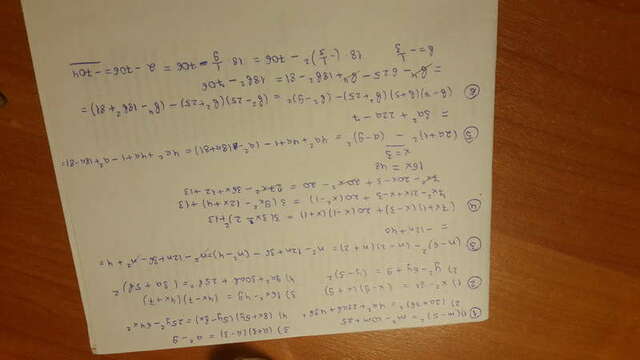 ① 1) (m-5)² = m² - 10m + 25
3) (a+3)(a-3) = a² - 9
4) (8x+5y)(5y-8x) = 25y² - 64x²
② 1) x² - 81 = (x-9)(x+9)
3) 16x² - 49 = (4x-7)(4x+7)
2) y² - 6y + 9 = (y-3)²
4) 9a² + 30ab + 25b² = (3a+5b)²
③ (n-6)² - (n-2)(n+2) = n² - 12n + 36 - (n²-4) = n² - 12n + 36 - n² + 4 =
= -12n + 40
④ (7x+1)(x-3) + 20(x-1)(x+1) = 3(3x-2)² + 13
7x² - 21x + x - 3 + 20(x²-1) = 3(9x² - 12x + 4) + 13
7x² - 20x - 3 + 20x² - 20 = 27x² - 36x + 12 + 13
16x = 48
x = 3
⑤ (2a+1)² - (a-9)² = 4a² + 4a + 1 - (a² - 18a + 81) = 4a² + 4a + 1 - a² + 18a - 81 =
= 3a² + 22a - 7
⑥ (b-5)(b+5)(b²+25) - (b²-9)² = (b²-25)(b²+25) - (b⁴ - 18b² + 81) =
= b⁴ - 625 - b⁴ + 18b² - 81 = 18b² - 706
b = -1/3
18(-1/3)² - 706 = 18 1/9 - 706 = 2 - 706 = -704